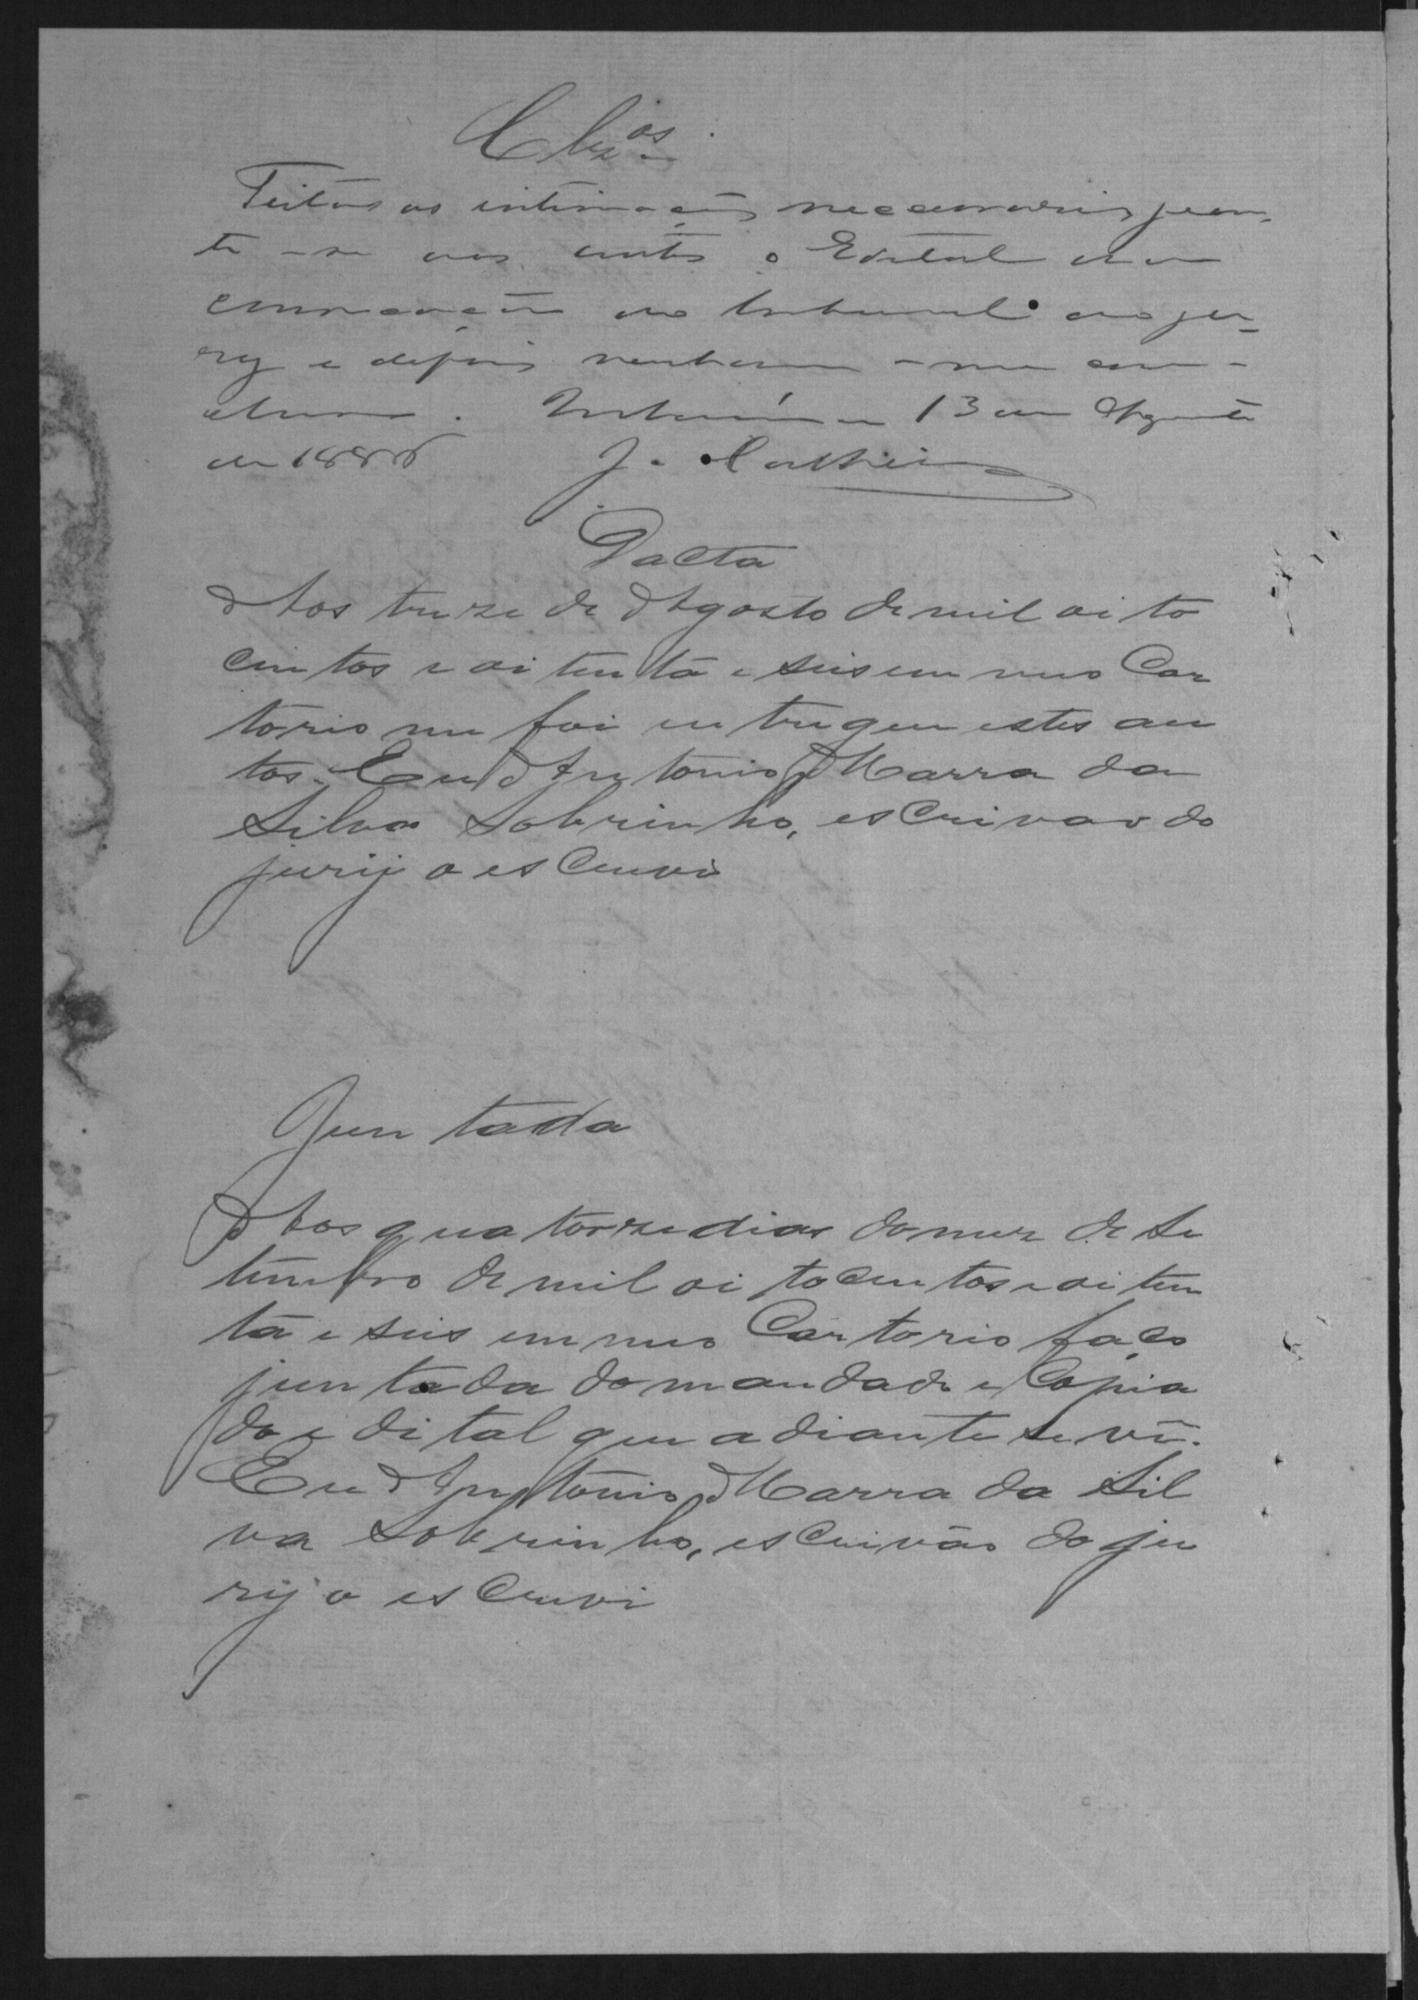 Clzos.
Feitas as intimações necessarias, jun-
te-se aos autos o Edital de
convocação do tribunal do ju-
ry e depois venham-me con-
clusos. 13 de Agosto
de 1886 J.
Dacta
Aos treze de Agosto de mil oito
centos e oitenta e seis em meo Car
torio me foi entregue estes au
tos. Eu Antonio Marra da
Silva Sobrinho, escrivão do
jury o escrevi
Juntada
Aos quatorze dias do mez de Se
tembro de mil oitocentos e oiten
ta e seis em meo Cartorio faço
juntada do mandado e Copia
do edital que adiante se vê.
Eu Antonio Marra da Sil
va Sobrinho, escrivão do ju
ry o escrevi